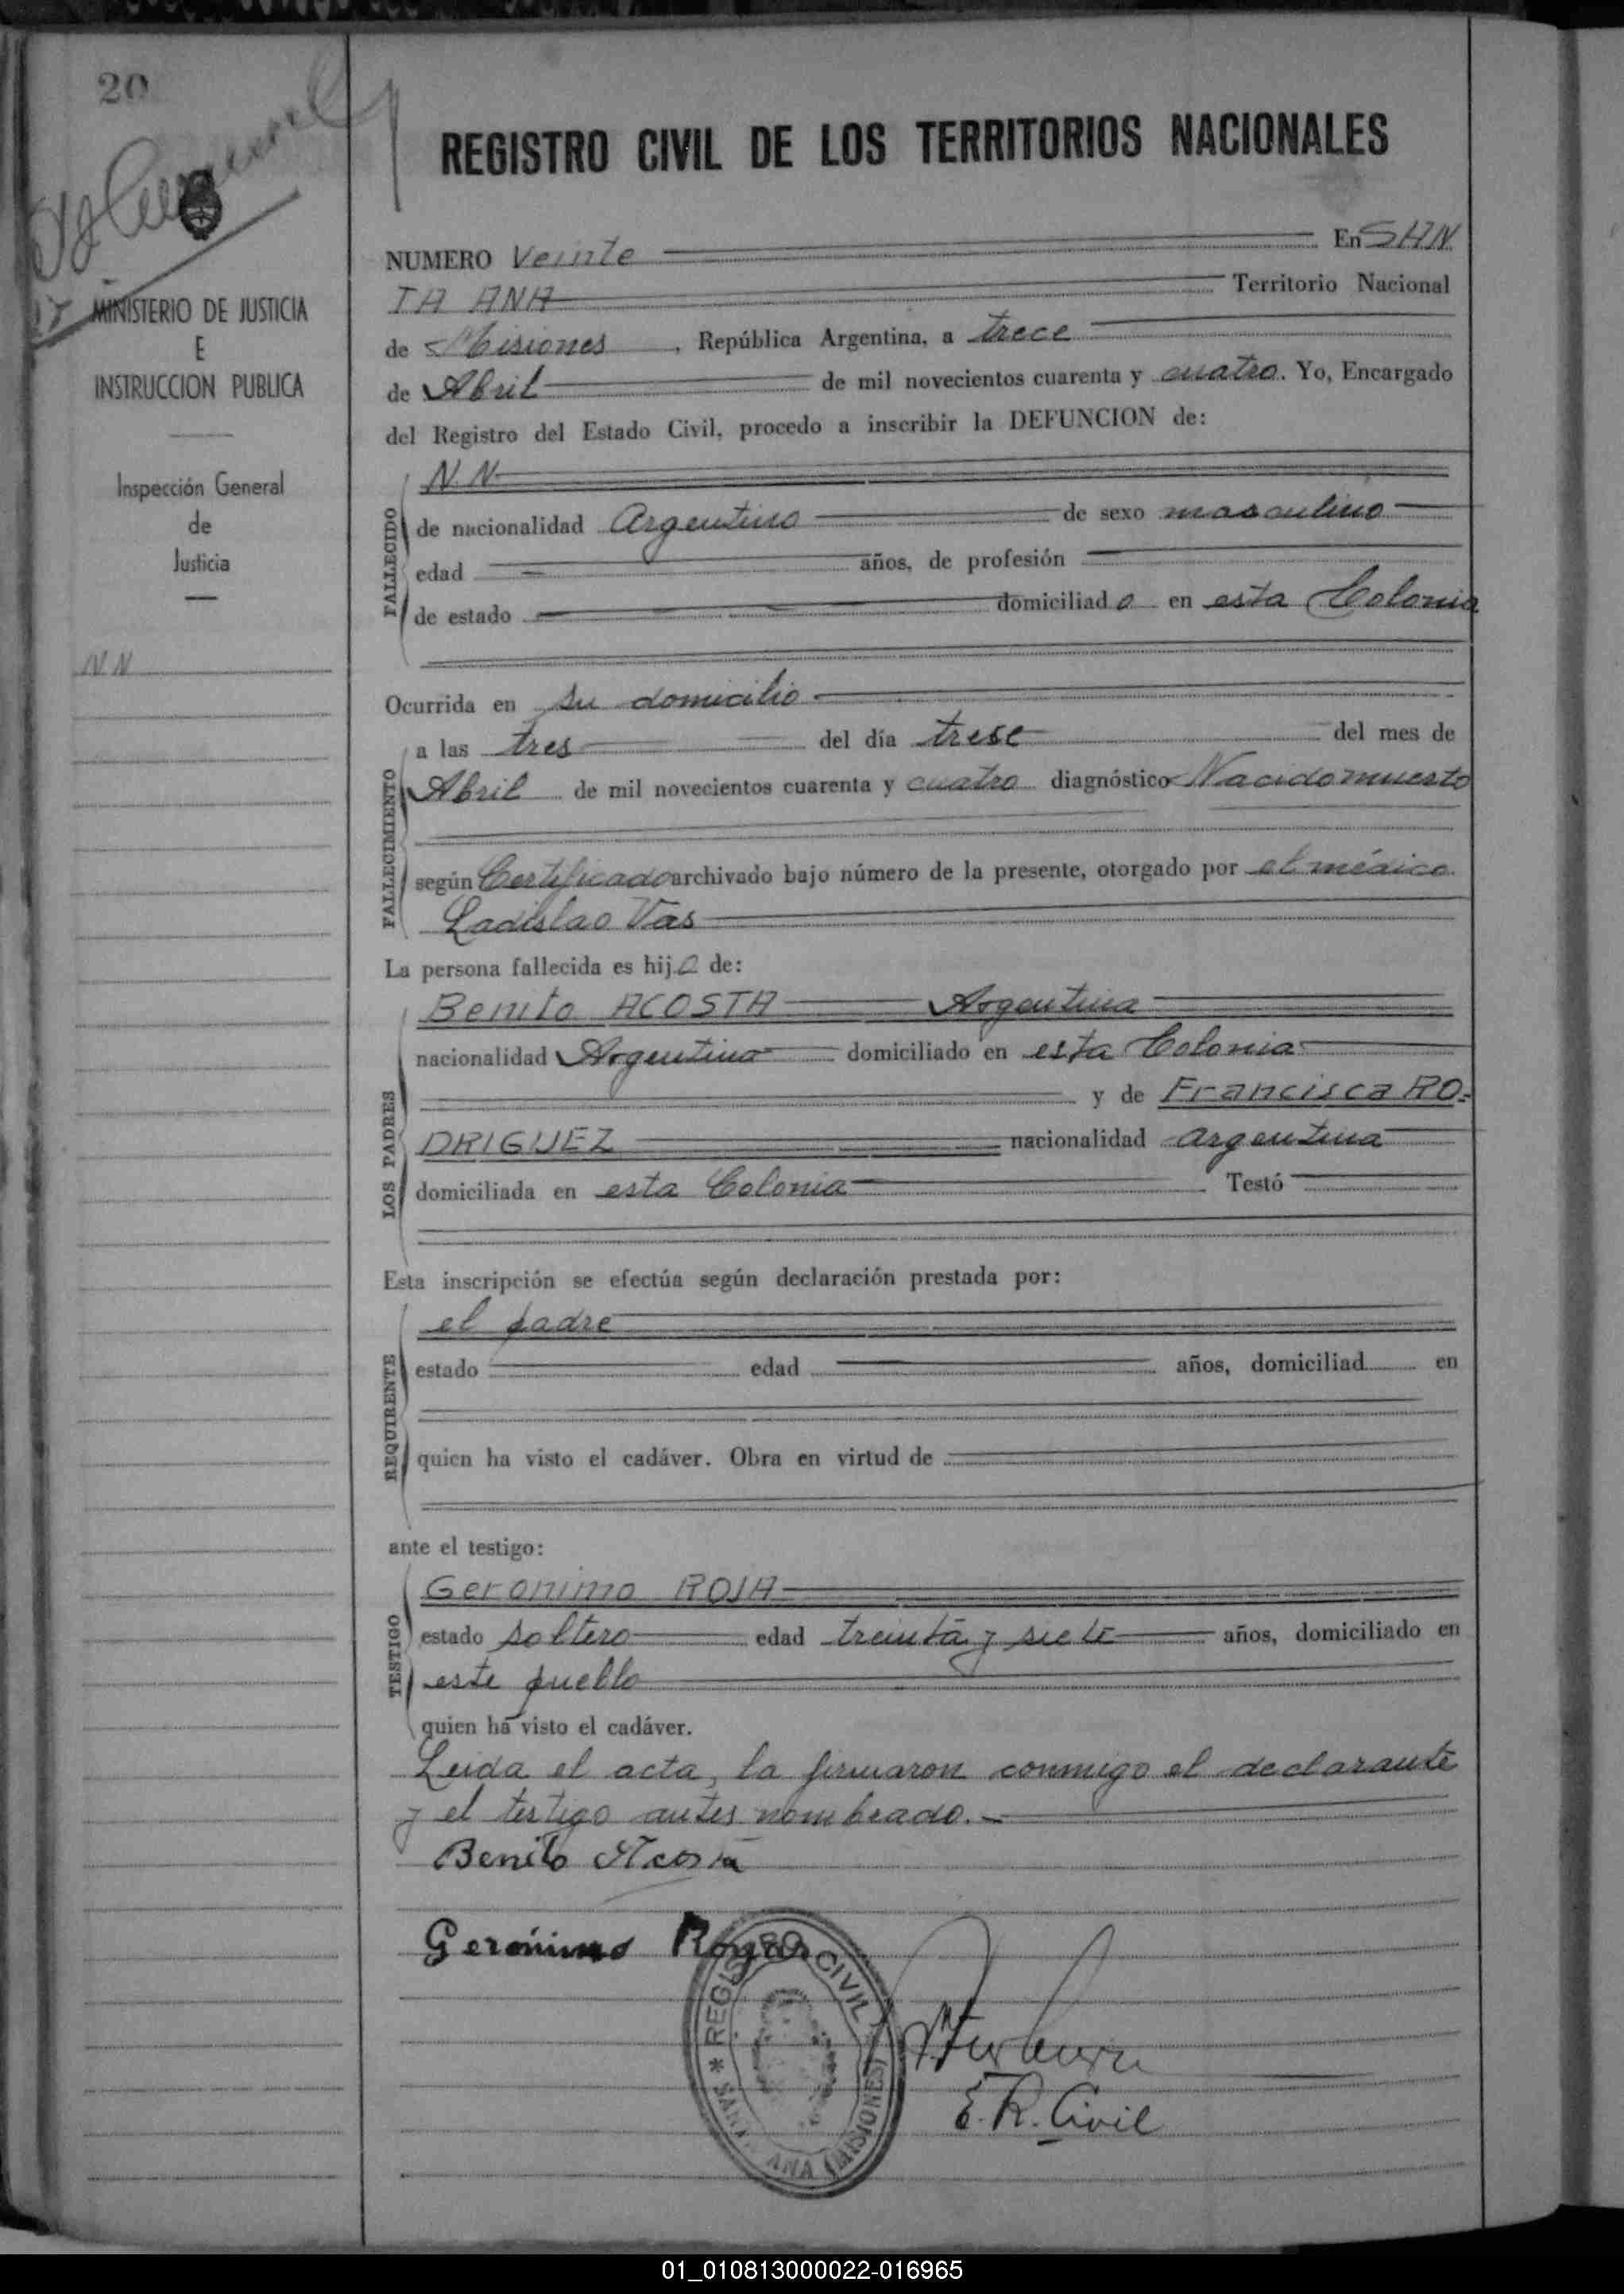 20
REGISTRO CIVIL DE LOS TERRITORIOS NACIONALES
MINISTERIO DE JUSTICIA
E
INSTRUCCION PUBLICA
Inspección General
de
Justicia
N.N
NUMERO Veinte En SAN
TA ANA Territorio Nacional
de Misiones, República Argentina, a trece
de Abril de mil novecientos cuarenta y cuatro. Yo, Encargado
del Registro del Estado Civil, procedo a inscribir la DEFUNCION de:
N.N.
FALLECIDO
de nacionalidad Argentino de sexo masculino
edad años, de profesión
de estado domiciliado en esta Colonia
Ocurrida en su domicilio
a las tres del día trese del mes de
FALLECIMIENTO
Abril de mil novecientos cuarenta y cuatro diagnóstico Nacido muerto
según Certificado archivado bajo número de la presente, otorgado por el médico
Ladislao Vas
La persona fallecida es hijo de:
Benito ACOSTA Argentina
LOS PADRES
nacionalidad Argentina domiciliado en esta Colonia
y de Francisca RO=
DRIGUEZ nacionalidad argentina
domiciliada en esta Colonia Testó
Esta inscripción se efectúa según declaración prestada por:
el padre
REQUIRENTE
estado edad años, domiciliad en
quien ha visto el cadáver. Obra en virtud de
ante el testigo:
Geronimo ROJA
TESTIGO
estado soltero edad treinta y siete años, domiciliado en
este pueblo
quien ha visto el cadáver.
Leida el acta, la firmaron conmigo el declarante
y el testigo antes nombrado.-
Benito Acosta
Gerónimo
* REGISTRO CIVIL
SANTA ANA (MISIONES)
E. R. Civil
01_010813000022-016965